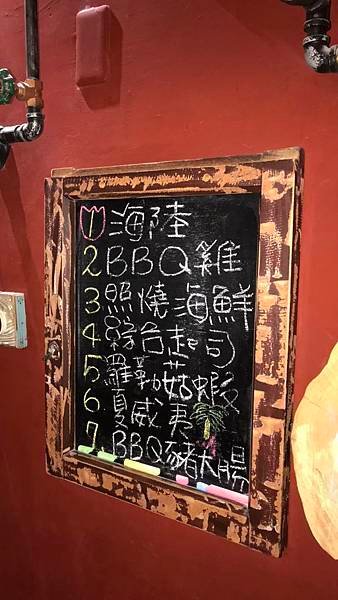 1 海陸
2 BBQ雞
3 照燒海鮮
4 綜合起司
5 羅勒菇蝦
6 夏威夷
7 BBQ豬大腸